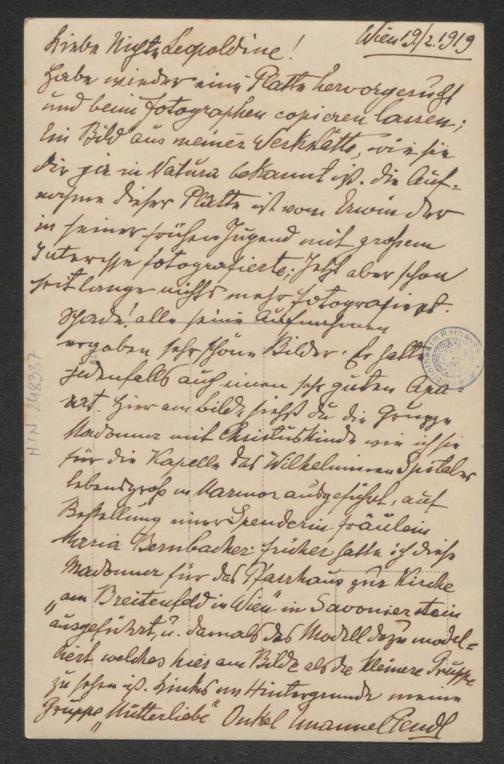 Wien 19/2.1919
Liebe Nichte Leopoldine!
Habe wieder eine Platte hervorgesucht
und beim Fotographen copieren lassen;
Ein Bild aus meiner Werkstatte, wie sie
dir ja in Natura bekannt ist. Die Auf-
nahme dieser Platte ist vom Erwin der
in seiner frühen Jugend mit großem
Interesse fotografierte; jetzt aber schon
seit lange nichts mehr fotografiert.
Schade! alle seine Aufnahmen
ergaben sehr schöne Bilder. Er hatte
jedenfalls auch einen sehr guten Apa-
rat. Hier am bilde siehst du die Gruppe
Madonna mit Christuskinde wie ich sie
für die Kapelle des Wilhelminen Spitales
lebensgroß in Marmor ausgeführt, auf
Bestellung einer Spenderin fräulein
Maria Kernbacher. früher hatte ich diese
Madonna für das Pfarrhaus zur Kirche
"am Breitenfeld in Wien" in Savonierstein
ausgeführt, u. damals das Modell dazu model-
liert welches hier am Bilde als die kleinere Gruppe
zu sehen ist. Links im Hintergrunde meine
Gruppe "Mutterliebe" Onkel Emanuel Pendl
H.I.N. 248337